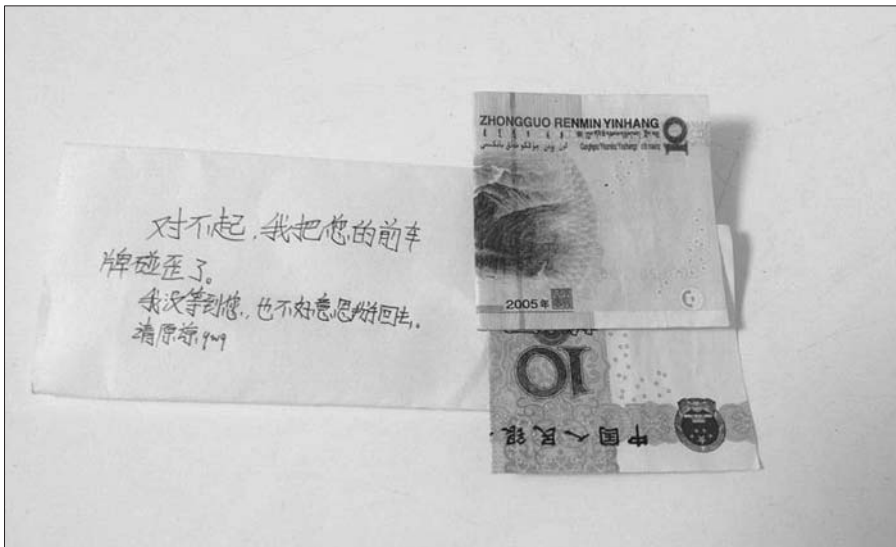 对不起,我把您的前车
牌碰歪了。
我没等到您,也不好意思掰回去,
请原谅,qwq
ZHONGGUO RENMIN YINHANG
10
2005年
10
中国人民银